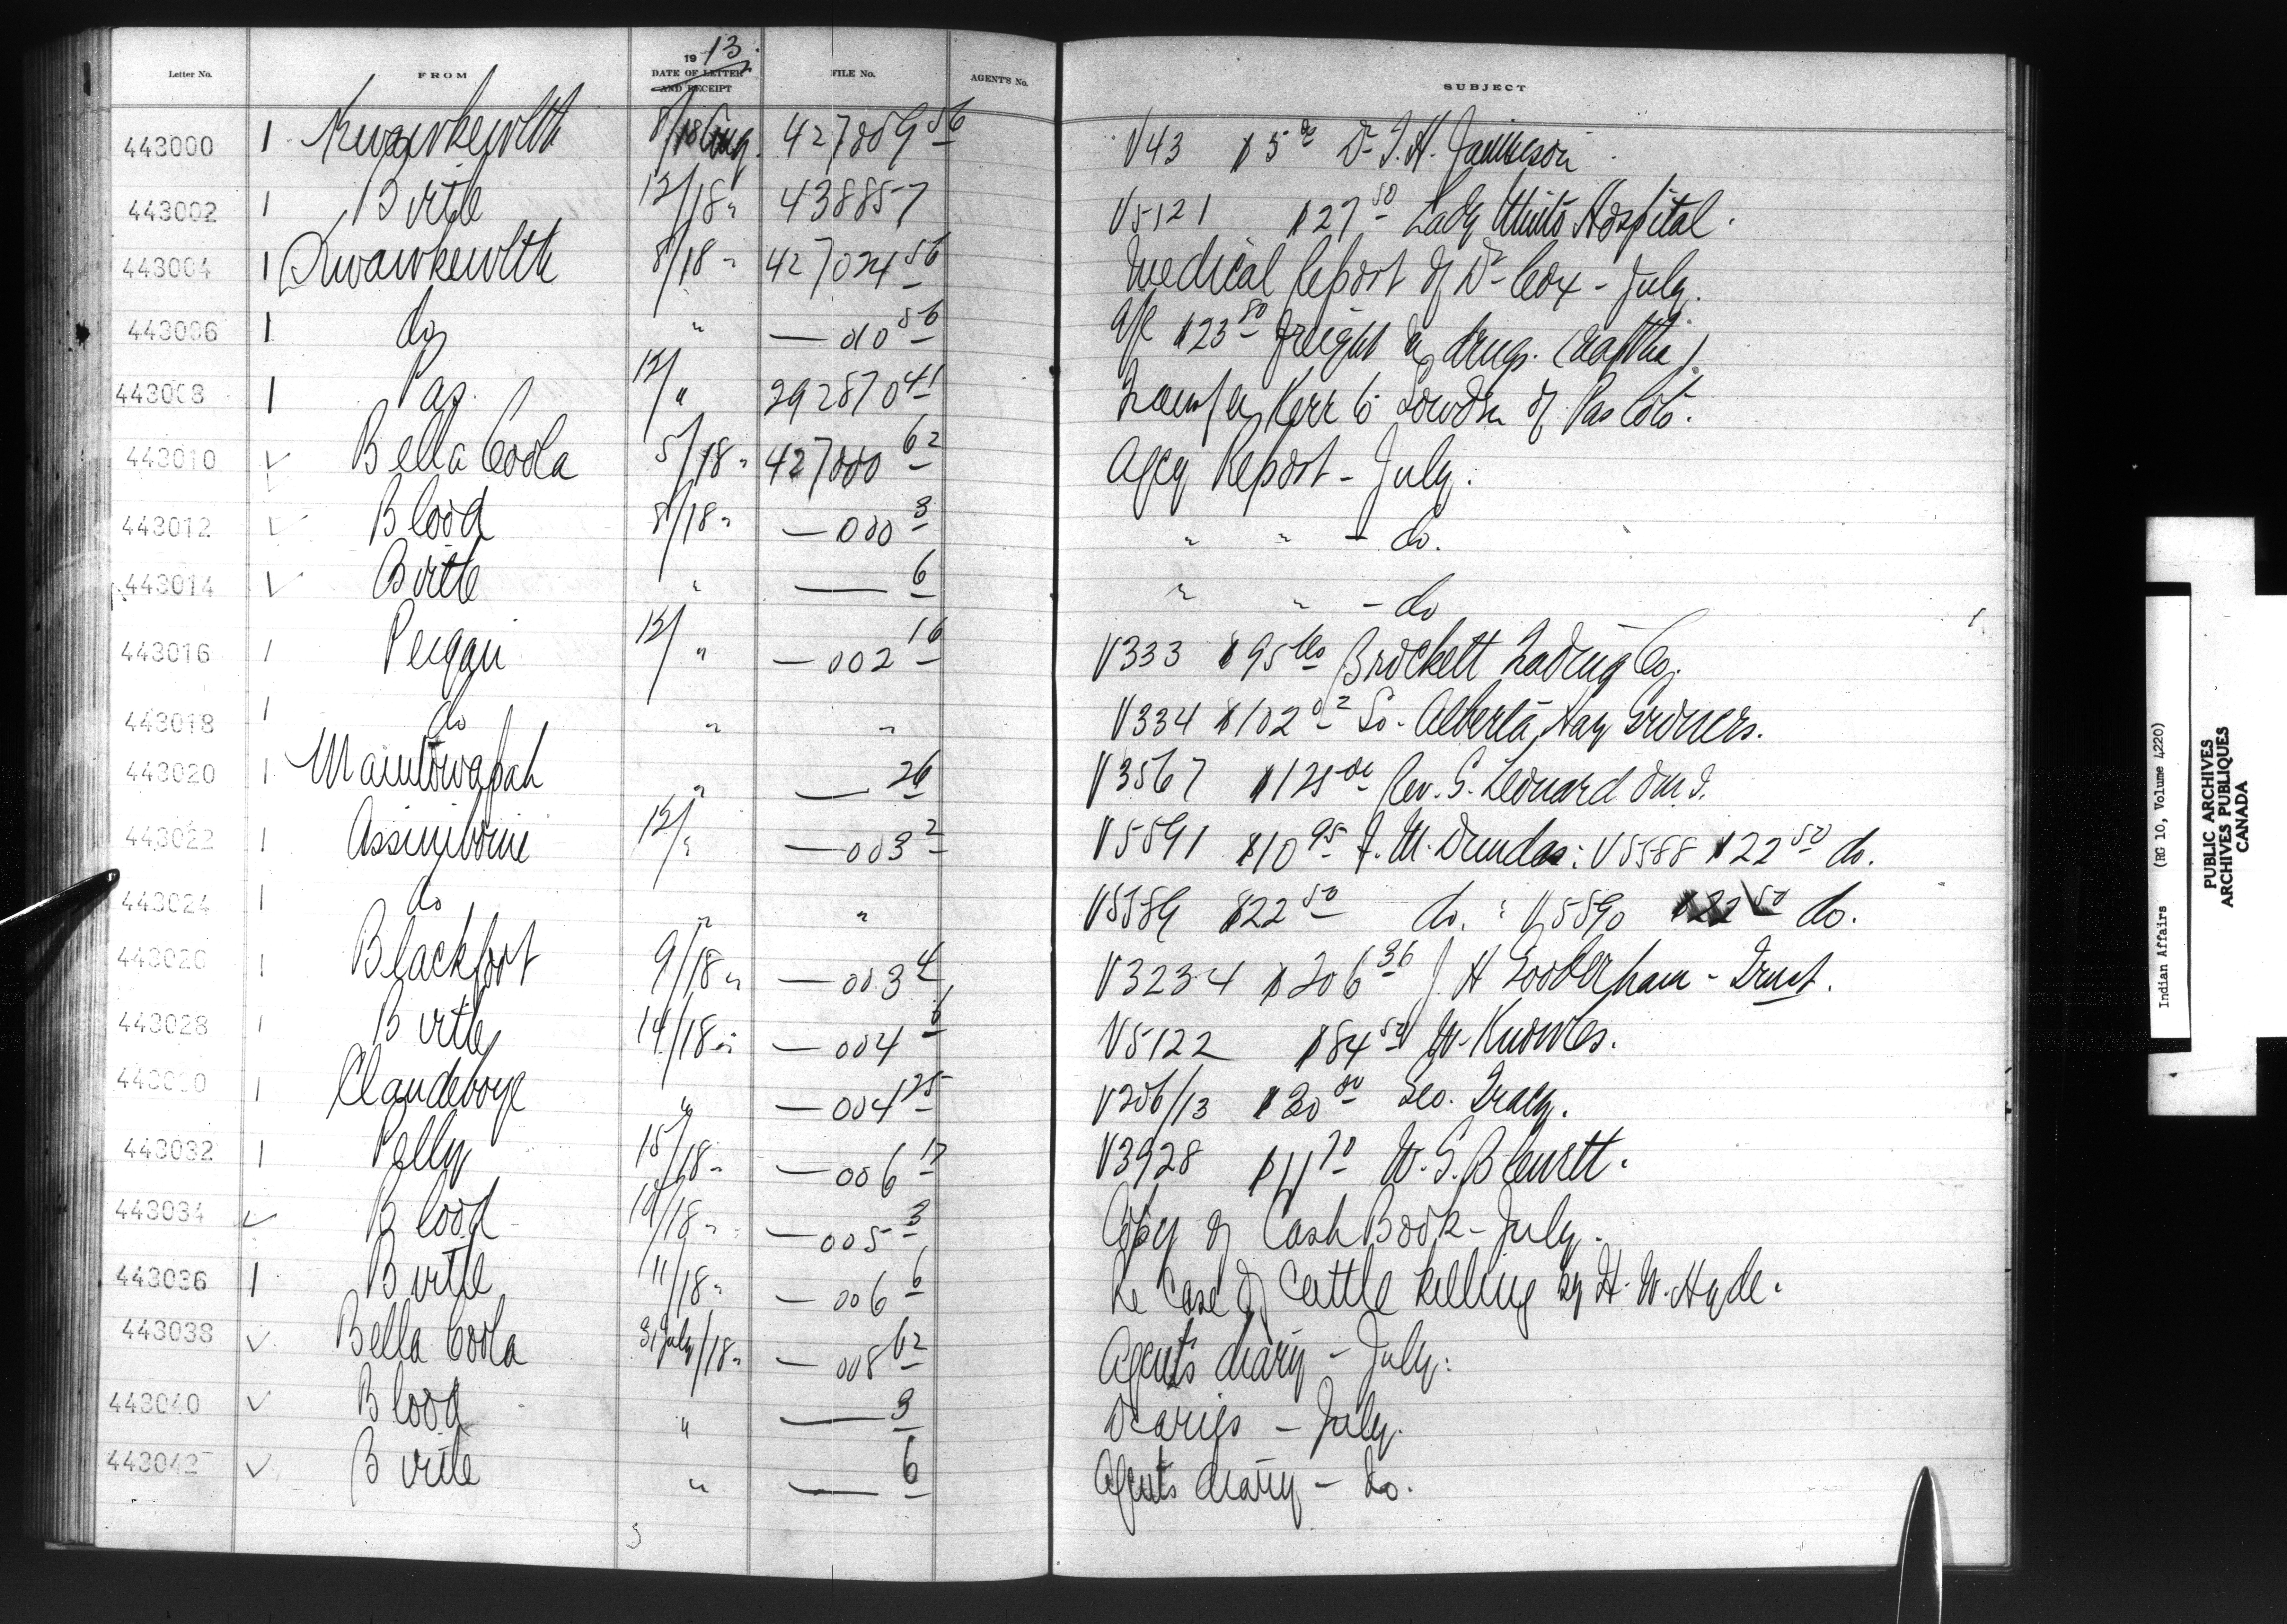 Letter No. FROM 1913 DATE OF LETTER AND RECEIPT FILE No. AGENT'S No. SUBJECT
443000 1 Kwawkewlth 8/18 Aug. 427009 56 V43 $5 00 Dr. J. H. Jamieson
443002 1 Birtle 12/18 " 438857 V5121 $27 50 Lady Minto Hospital.
443004 1 Kwawkewlth 8/18 " 427024 56 Medical Report of Dr Cox - July.
443006 1 do " — 010 56 a/c $23 80 freight on drugs.
443008 1 Pas 12/ " 292870 41 Transfer Kerr to of Pas lots.
443010 ✓ Bella Coola 5/18 " 427000 62 Agcy Report - July.
443012 ✓ Blood 8/18 " — 000 3 " " - do.
443014 ✓ Birtle " — 6 " " - do
443016 1 Peigan 12/ " — 002 16 V333 $95 60 Brockett Trading Co.
443018 1 do " " V334 $102 02 So. Alberta Hay Growers.
443020 1 Manitowapah " — 26 V3567 $125 00 Rev. G. Leonard O.M.I.
443022 1 Assiniboine 12/ " — 003 2 V5591 $10 95 J. M. Dundas: V5588 $22 50 do.
443024 1 do " " V5589 $22 50 do. : V5590 $22 50 do.
443026 1 Blackfoot 9/18 " — 003 4 V3234 $206 36 J H Gooderham - Trust.
443028 1 Birtle 14/18 " — 004 6 V5122 $84 50 W. Knowles.
443030 1 Clandeboye " — 004 125 V206/13 $30 80 Geo. Tracy.
443032 1 Pelly 15/18 " — 006 17 V3928 $11 70 W. G. Blewett.
443034 ✓ Blood 14/18 " — 005 3 Copy of Cash Book - July.
443036 1 Birtle 11/18 " — 006 6 Re Case of Cattle killing by H. W. Hyde.
443038 ✓ Bella Coola 31 July/18 " — 008 62 Agent's diary - July.
443040 ✓ Blood " — 3 Diaries - July.
443042 ✓ Birtle " — 6 Agents diary - do.
Indian Affairs (RG 10, Volume 4220)
PUBLIC ARCHIVES
ARCHIVES PUBLIQUES
CANADA